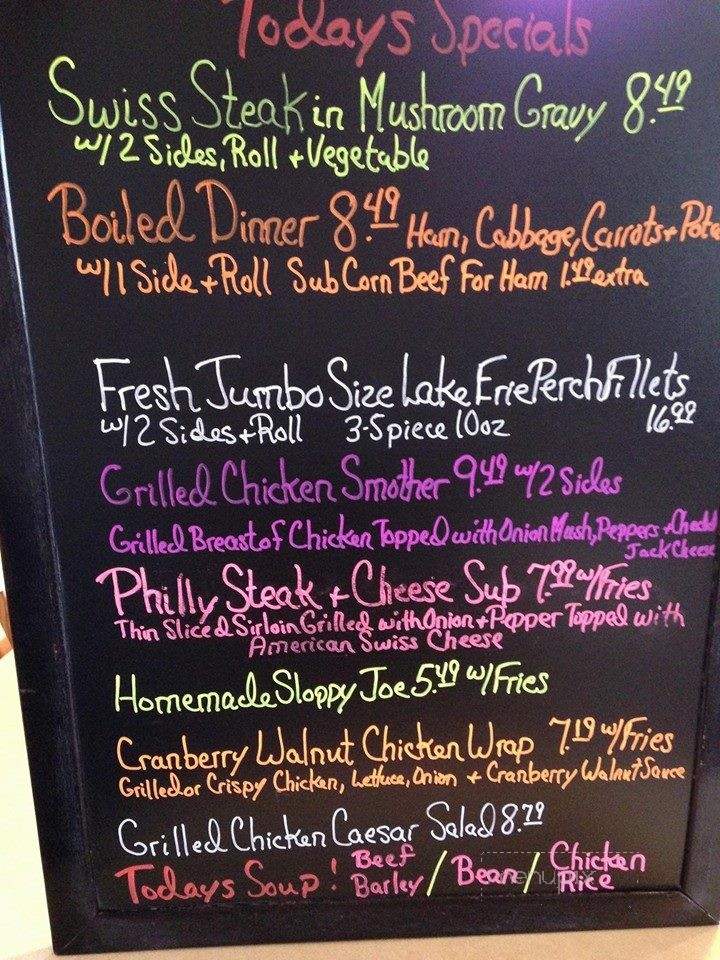 Todays Specials
Swiss Steak in Mushroom Gravy 8.49
w/ 2 Sides, Roll + Vegetable
Boiled Dinner 8.49 Ham, Cabbage, Carrots + Pota
w/1 Side + Roll Sub Corn Beef For Ham 1.49 extra
Fresh Jumbo Size Lake Erie Perch Fillets
w/2 Sides + Roll 3-5 piece 10oz 16.99
Grilled Chicken Smother 9.49 w/2 Sides
Grilled Breast of Chicken Topped with Onion Mush, Peppers + Chedd
Jack Cheese
Philly Steak + Cheese Sub 7.99 w/Fries
Thin Sliced Sirloin Grilled with Onion + Pepper Topped with
American Swiss Cheese
Homemade Sloppy Joe 5.49 w/Fries
Cranberry Walnut Chicken Wrap 7.19 w/Fries
Grilled or Crispy Chicken, Lettuce, Onion + Cranberry Walnut Sauce
Grilled Chicken Caesar Salad 8.79
Todays Soup! Beef Barley / Bean / Chicken Rice